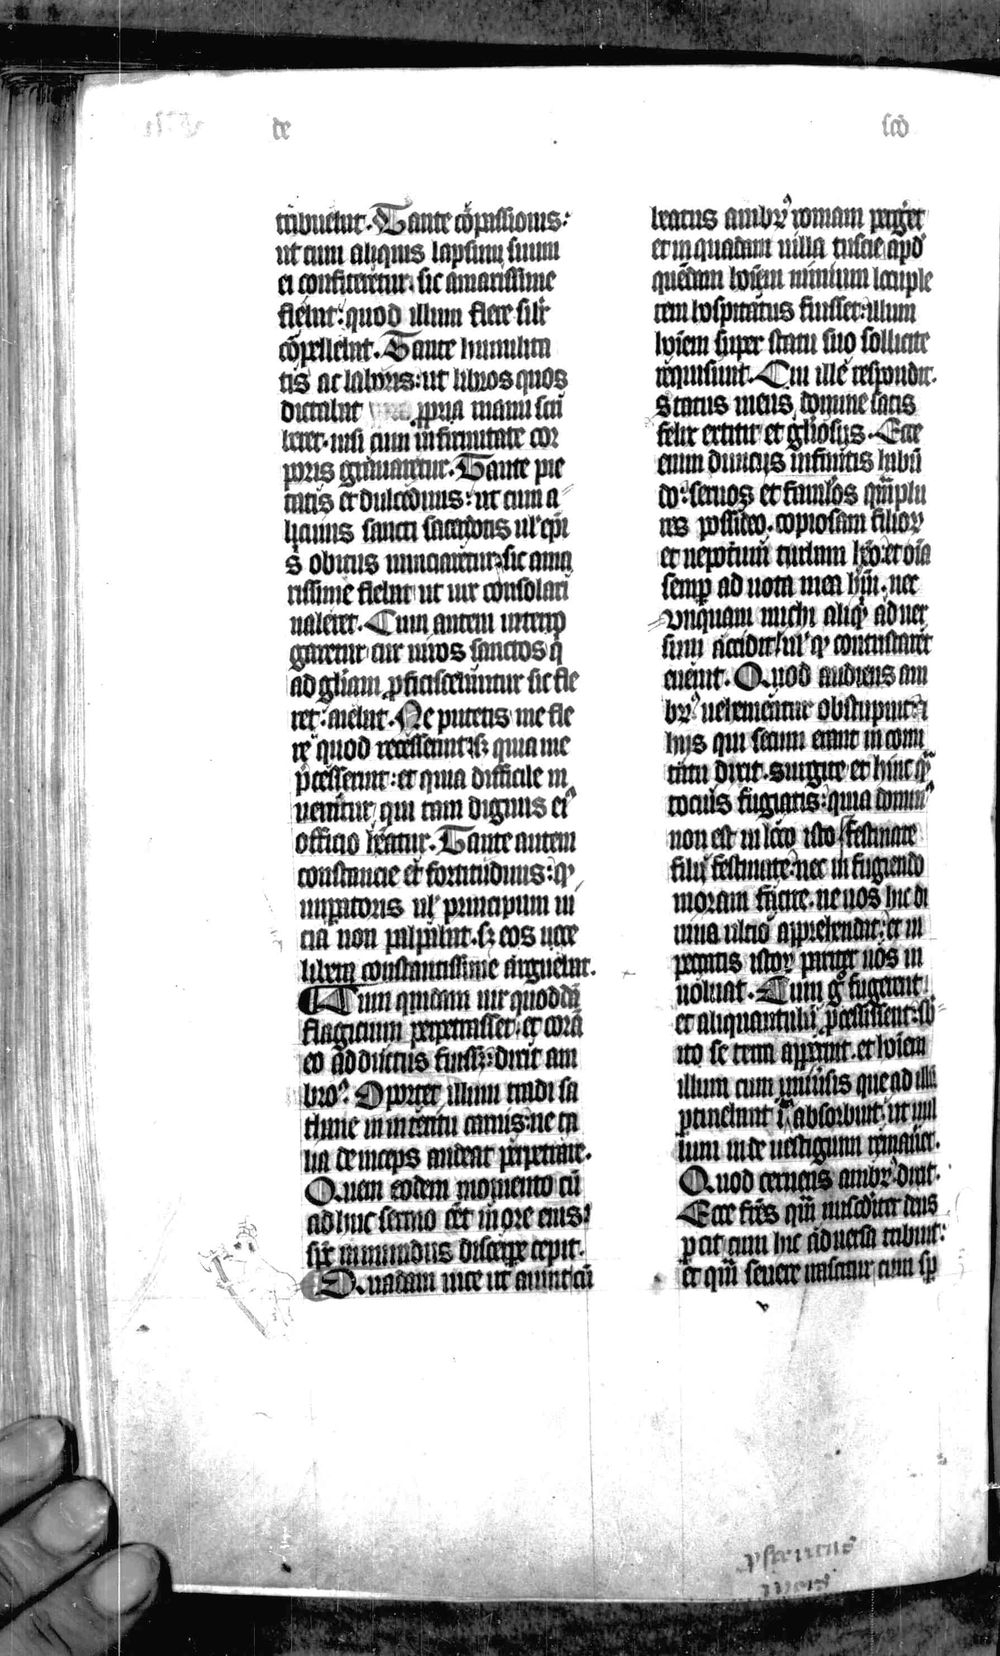 de
scō
tribuebat. Tante cōpassionis:
ut cum aliquis lapsum suum
ei confiteretur: sic amarissime
flebat: quod illum flere sil'r
cōpellebat. Tante humilita
tis ac laboris: ut libros quos
dictabat ppria manu scri
beret. nisi cum infirmitate cor
poris grauaretur. Tante pie
tatis et dulcedinis: ut cum a
licuius sancti sacerdotis ul' epi
s obitus nunciaretur: sic ama
rissime flebat ut uix consolari
ualeret. Cum autem interro
garetur cur uiros sanctos q
ad gliam pficiscebantur sic fle
ret: aiebat. Ne putetis me fle
re quod recesserunt: sz quia me
pcesserunt: et quia difficile in
uenitur qui tam dignus ei9
officio hēatur. Tante autem
constancie et fortitudinis: q
imperatoris ul' principum ui
cia non palpabat. sz eos uoce
libera constantissime arguebat.
Cum quidam uir quoddā
flagicium perpetrasset. et corā
eo adductus fuissz: dixit am
bro9. Oportet illum tradi sa
thane in interitu carnis: ne ta
lia deinceps audeat perpetrare.
Quem eodem momento cū
adhuc sermo eēt in ore eius:
spc inmundus discerpe cepit.
Quadam uice ut aiunt cū
beatus ambr9 romam pergeret
et in quadam uilla tuscie apd
quēdam hoīem nimium locuple
tem hospitatus fuisset: illum
hoīem super statu suo sollicite
requisiuit. Cui ille respondit.
Status meus domine satis
felix extitit et gliosus. Ecce
enim diuicijs infinitis habū
do: seruos et famulos qmplu
res possideo. copiosam filioꝝ
et nepotum turbam hēo. et oīa
semp ad uota mea hui. nec
vnquam michi aliqd aduer
sum accidit: ul' qd contristaret
euenit. Quod audiens am
br9 uehementer obstupuit: et
hijs qui secum erant in comi
tatu dixit. surgite et hinc qm
tocius fugiatis: quia domin9
non est in loco isto. festinate
filij festinate: nec in fugiendo
moram facite. ne nos hic di
uina ulcio apprehendat: et in
peccatis istoꝝ pariter nos in
uoluat. Cum g fugerent
et aliquantulū pcessissent: sb
ito se terra apperuit. et hoīem
illum cum uniūsis que ad illū
ptinebant ita absorbuit: ut nul
lum inde uestigium remaneret.
Quod cernens ambr9 dixit.
Ecce frēs qm misecorditer deus
pcit cum hic aduersa tribuit:
et qm seuere irascitur cum sp